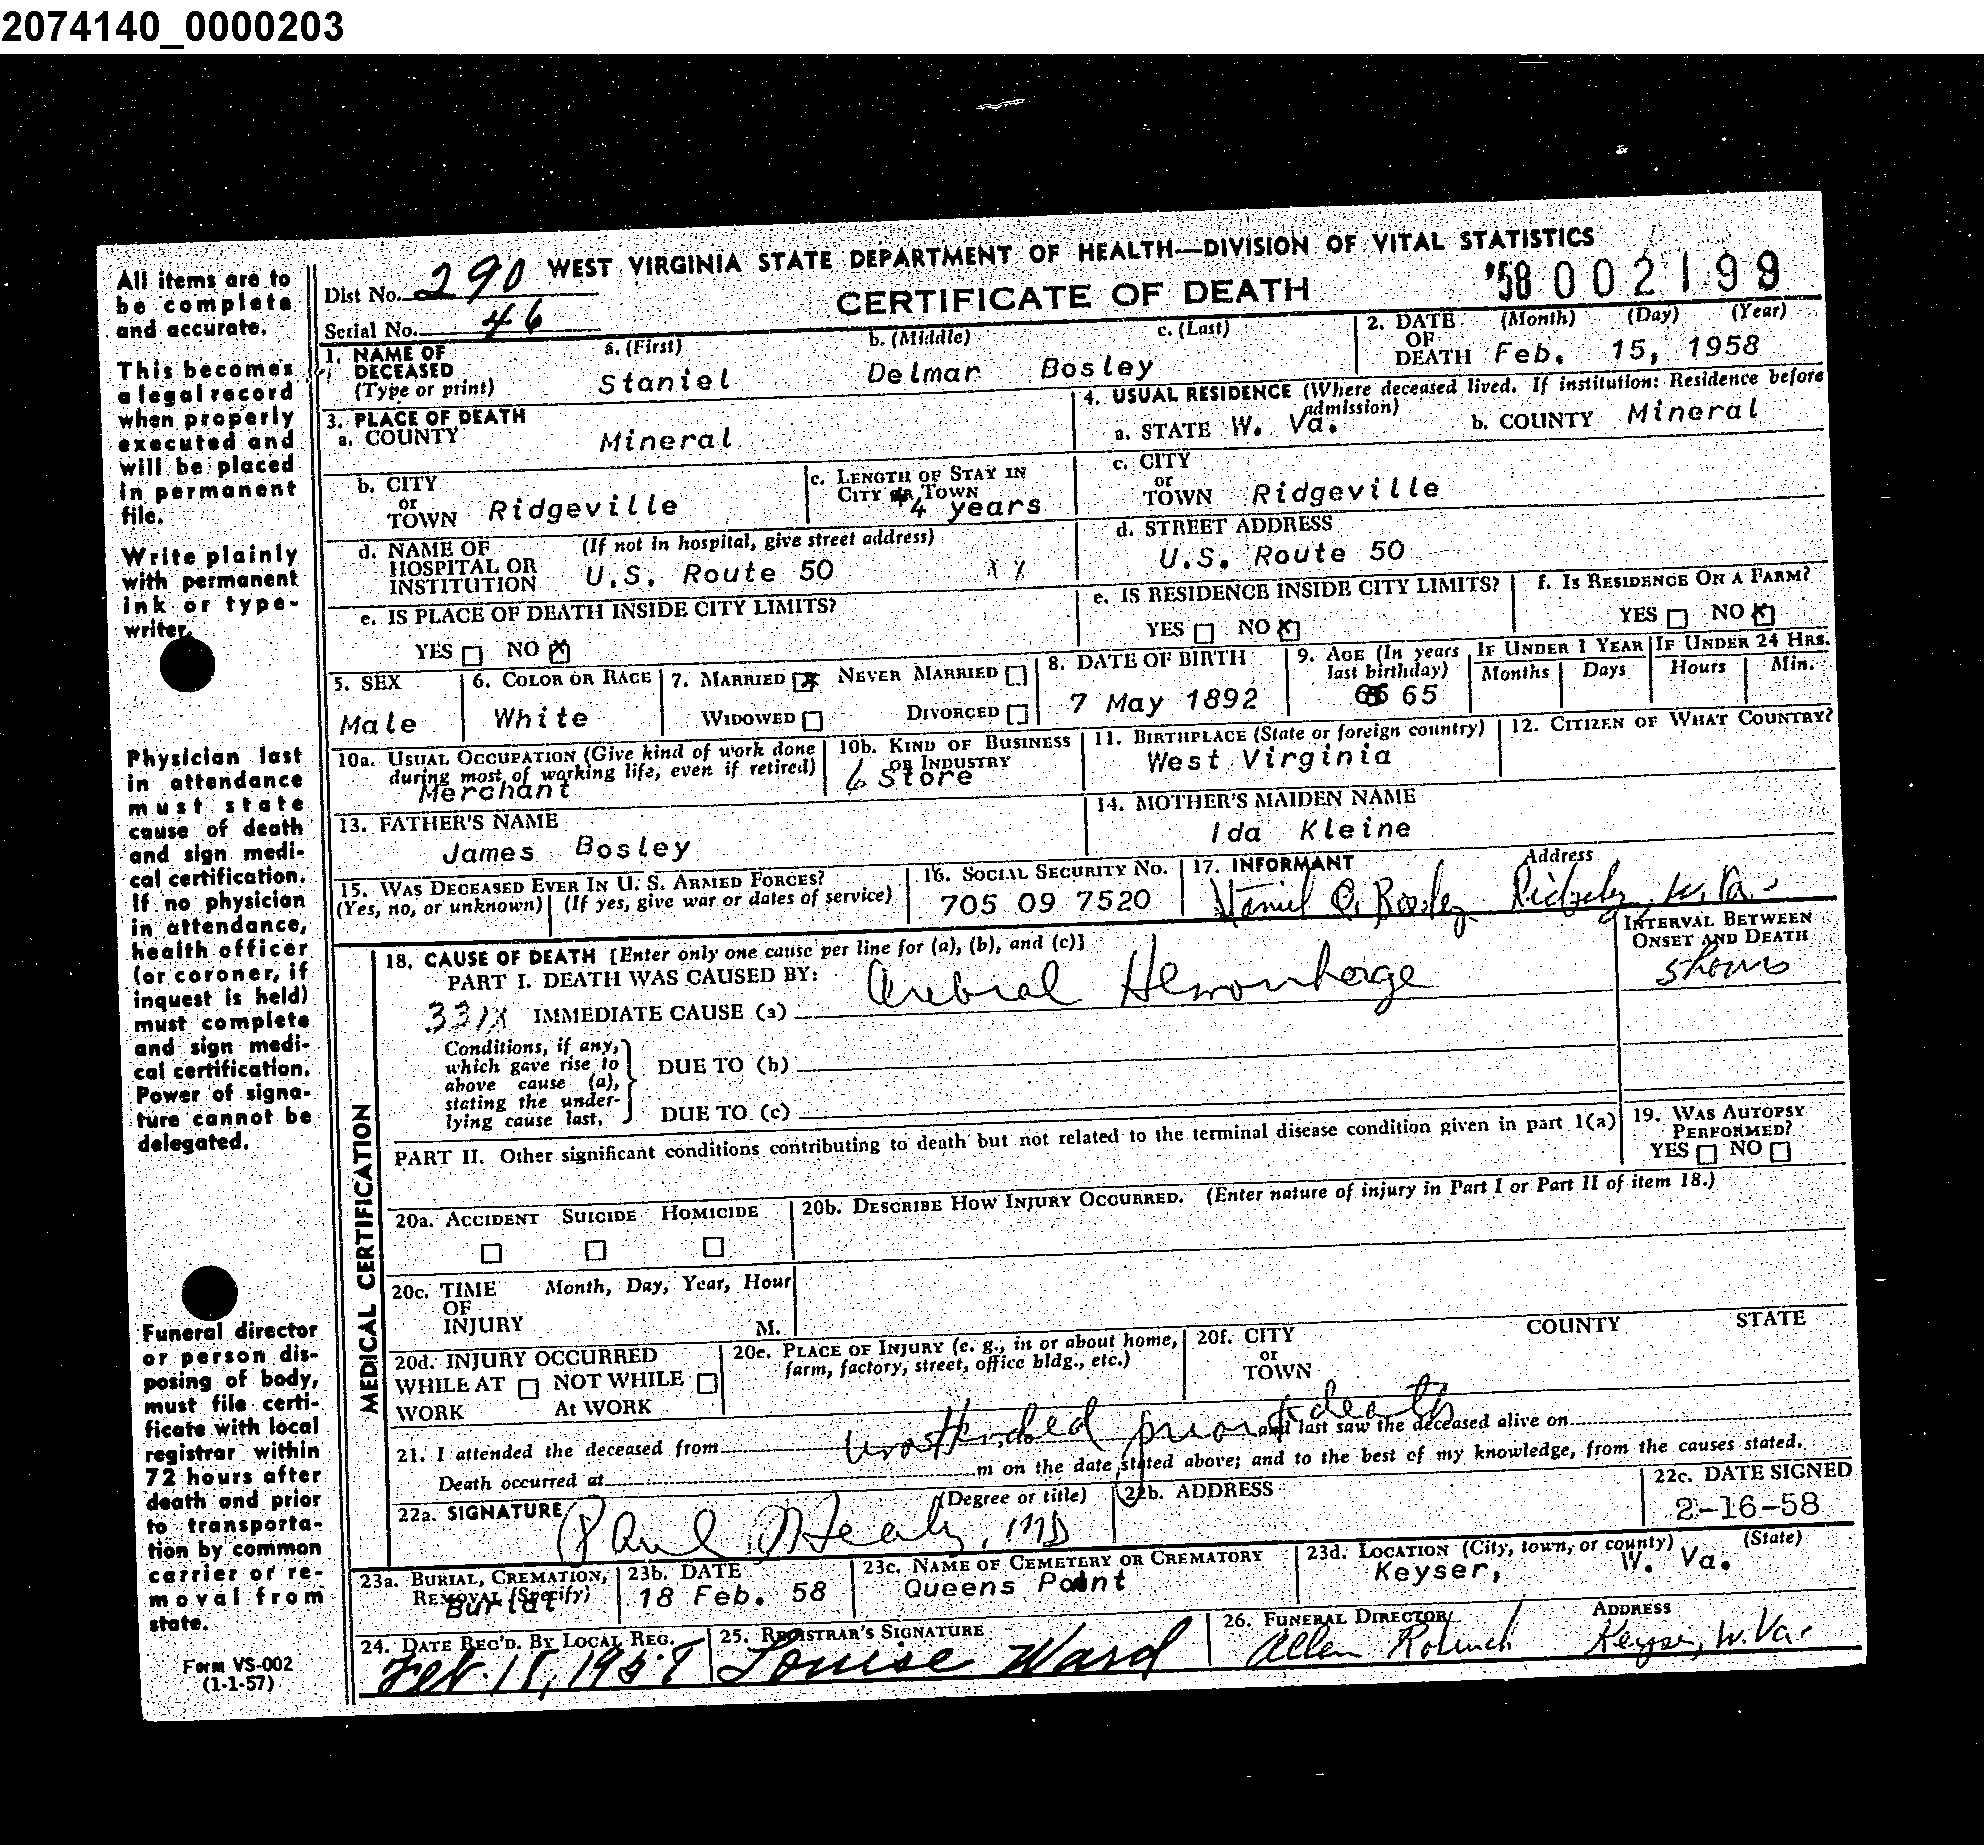 2074140_0000203
All items are to
be complete
and accurate.
This becomes
a legal record
when properly
executed and
will be placed
in permanent
file.
Write plainly
with permanent
ink or type-
writer.
Physician last
in attendance
must state
cause of death
and sign medi-
cal certification.
If no physician
in attendance,
health officer
(or coroner, if
inquest is held)
must complete
and sign medi-
cal certification.
Power of signa-
ture cannot be
delegated.
Funeral director
or person dis-
posing of body,
must file certi-
ficate with local
registrar within
72 hours after
death and prior
to transporta-
tion by common
carrier or re-
moval from
state.
Form VS-002
(1-1-57)
Dist No. 290 WEST VIRGINIA STATE DEPARTMENT OF HEALTH—DIVISION OF VITAL STATISTICS
Serial No. 46 CERTIFICATE OF DEATH '58 002199
1. NAME OF DECEASED (Type or print) a. (First) b. (Middle) c. (Last)
Staniel Delmar Bosley
2. DATE OF DEATH (Month) (Day) (Year)
Feb. 15, 1958
3. PLACE OF DEATH
a. COUNTY Mineral
4. USUAL RESIDENCE (Where deceased lived. If institution: Residence before admission)
a. STATE W. Va. b. COUNTY Mineral
b. CITY or TOWN Ridgeville
c. LENGTH OF STAY IN CITY OR TOWN 4 years
c. CITY or TOWN Ridgeville
d. NAME OF HOSPITAL OR INSTITUTION (If not in hospital, give street address)
U.S. Route 50 XX
d. STREET ADDRESS
U.S. Route 50
e. IS PLACE OF DEATH INSIDE CITY LIMITS?
YES NO X
e. IS RESIDENCE INSIDE CITY LIMITS?
YES NO X
f. IS RESIDENCE ON A FARM?
YES NO X
5. SEX
Male
6. COLOR OR RACE
White
7. MARRIED X NEVER MARRIED
WIDOWED DIVORCED
8. DATE OF BIRTH
7 May 1892
9. AGE (In years last birthday)
65
IF UNDER 1 YEAR
Months Days
IF UNDER 24 HRS.
Hours Min.
10a. USUAL OCCUPATION (Give kind of work done during most of working life, even if retired)
Merchant
10b. KIND OF BUSINESS OR INDUSTRY
6 Store
11. BIRTHPLACE (State or foreign country)
West Virginia
12. CITIZEN OF WHAT COUNTRY?
13. FATHER'S NAME
James Bosley
14. MOTHER'S MAIDEN NAME
Ida Kleine
15. WAS DECEASED EVER IN U. S. ARMED FORCES?
(Yes, no, or unknown) (If yes, give war or dates of service)
16. SOCIAL SECURITY NO.
705 09 7520
17. INFORMANT Address
Bosley Ridgeley, W. Va.
18. CAUSE OF DEATH [Enter only one cause per line for (a), (b), and (c)]
INTERVAL BETWEEN ONSET AND DEATH
PART I. DEATH WAS CAUSED BY:
331X IMMEDIATE CAUSE (a) Cerebral Hemorrhage 5 hours
Conditions, if any, which gave rise to above cause (a), stating the under-lying cause last.
DUE TO (b)
DUE TO (c)
PART II. Other significant conditions contributing to death but not related to the terminal disease condition given in part I(a)
19. WAS AUTOPSY PERFORMED?
YES NO
MEDICAL CERTIFICATION
20a. ACCIDENT SUICIDE HOMICIDE
20b. DESCRIBE HOW INJURY OCCURRED. (Enter nature of injury in Part I or Part II of item 18.)
20c. TIME OF INJURY Month, Day, Year, Hour
M.
20d. INJURY OCCURRED
WHILE AT WORK NOT WHILE At WORK
20e. PLACE OF INJURY (e. g., in or about home, farm, factory, street, office bldg., etc.)
20f. CITY or TOWN COUNTY STATE
unattended prior to death
21. I attended the deceased from and last saw the deceased alive on
Death occurred at m on the date stated above; and to the best of my knowledge, from the causes stated.
22a. SIGNATURE (Degree or title)
Paul Healy, MD
22b. ADDRESS
22c. DATE SIGNED
2-16-58
23a. BURIAL, CREMATION, REMOVAL (Specify)
Burial
23b. DATE
18 Feb. 58
23c. NAME OF CEMETERY OR CREMATORY
Queens Point
23d. LOCATION (City, town, or county) (State)
Keyser, W. Va.
24. DATE REC'D. BY LOCAL REG.
Feb. 18, 1958
25. REGISTRAR'S SIGNATURE
Louise Ward
26. FUNERAL DIRECTOR ADDRESS
Allen Keyser, W. Va.